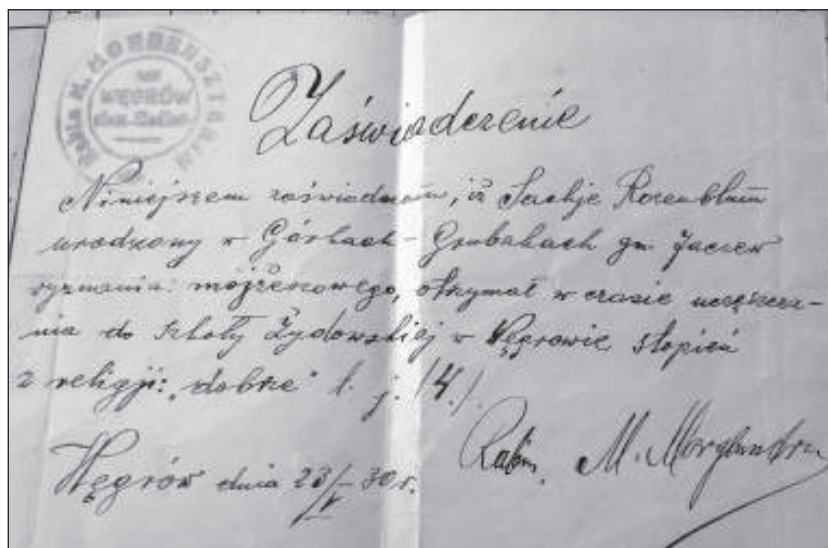 Rabin M. MORGENSZTERN
WĘGRÓW
Zaświadczenie
Niniejszem zaświadczam, iż Rozenblum
urodzony w Górkach-Grubakach gm. Jaczew
wyznania: mojżeszowego, otrzymał w czasie uczęszcza-
nia do szkoły Żydowskiej w Węgrowie stopień
z religji: „dobrze" t. j. (4.)
Węgrów dnia 23/V 30 r.
Rabin. M. Morgensztern